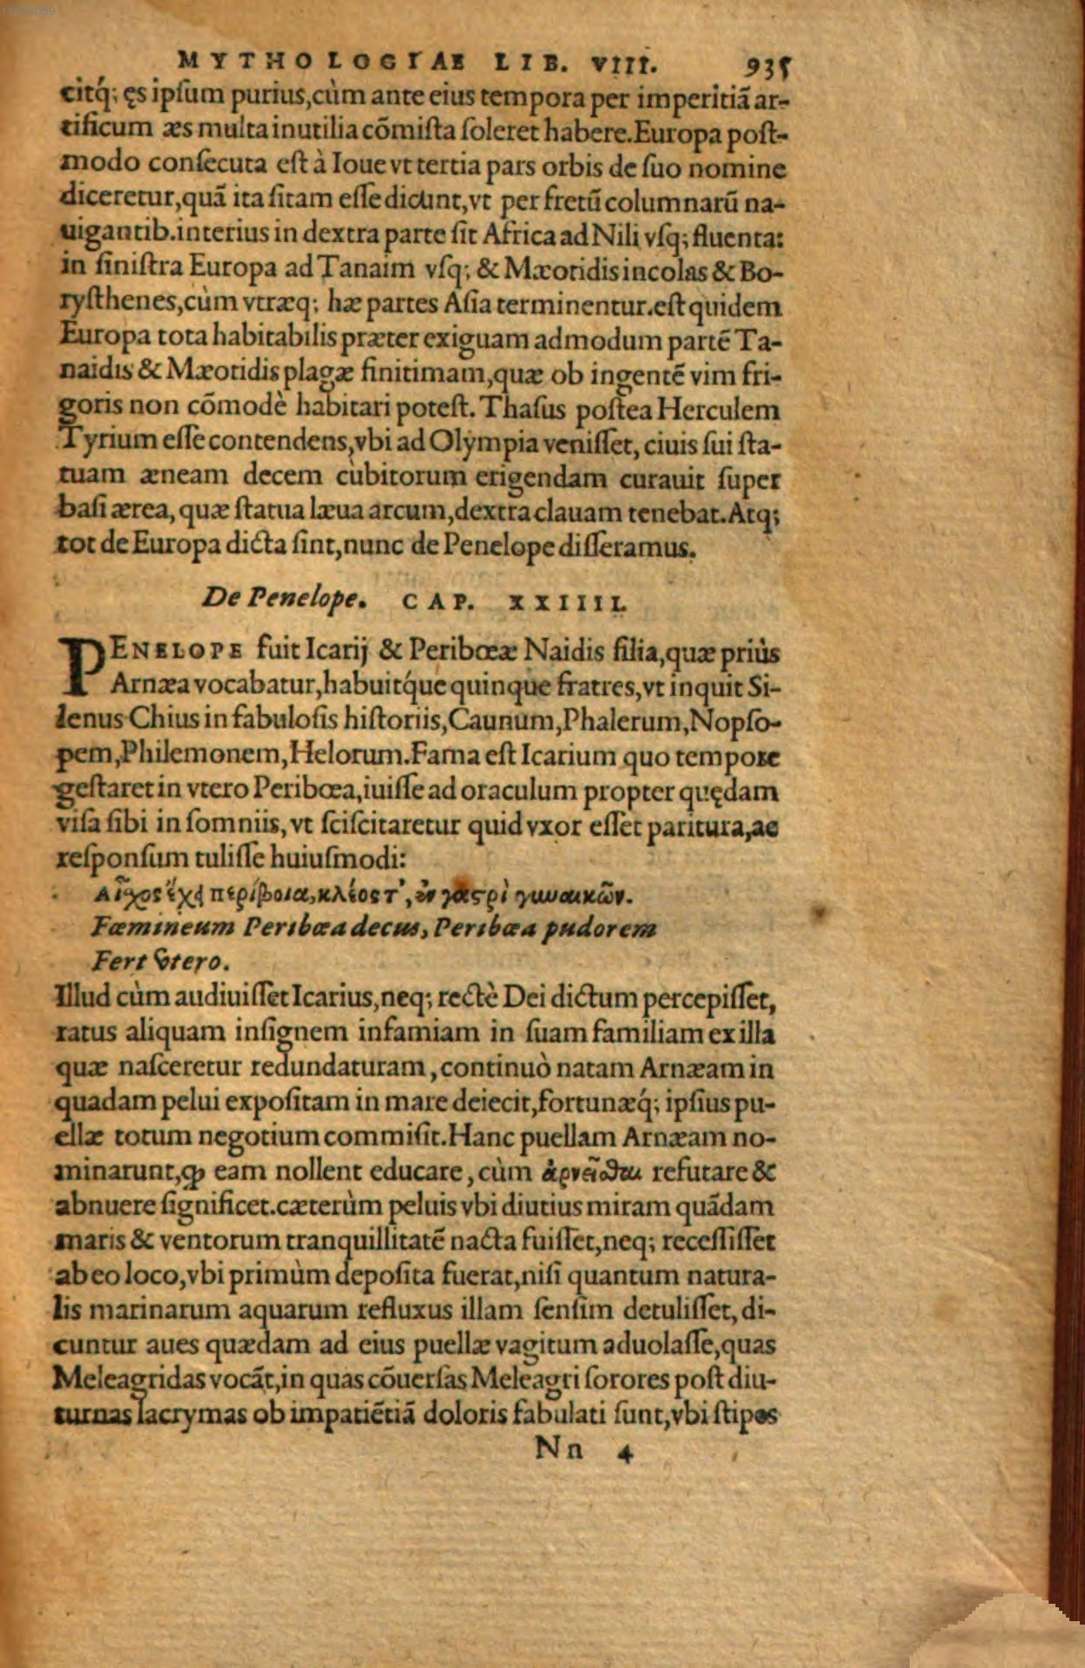 MYTHOLOGIAE LIB. VIII. 935
citq́; ęs ipſum purius, cùm ante eius tempora per imperitiã ar-
tificum æs multa inutilia cõmiſta ſoleret habere. Europa poſt-
modo conſecuta eſt à Ioue vt tertia pars orbis de ſuo nomine
diceretur, quã ita ſitam eſſe dicunt, vt per fretũ columnarũ na-
uigantib. interius in dextra parte ſit Africa ad Nili vſq; fluenta:
in ſiniſtra Europa ad Tanaim vſq; & Mæotidis incolas & Bo-
ryſthenes, cùm vtræq; hæ partes Aſia terminentur. eſt quidem
Europa tota habitabilis præter exiguam admodum partẽ Ta-
naidis & Mæotidis plagæ finitimam, quæ ob ingentẽ vim fri-
goris non cõmodè habitari poteſt. Thaſus poſtea Herculem
Tyrium eſſe contendens, vbi ad Olympia veniſſet, ciuis ſui ſta-
tuam æneam decem cubitorum erigendam curauit ſuper
baſi ærea, quæ ſtatua læua arcum, dextra clauam tenebat. Atq;
tot de Europa dicta ſint, nunc de Penelope diſſeramus.
De Penelope. CAP. XXIIII.
PENELOPE fuit Icarij & Peribœæ Naidis filia, quæ priùs
Arnæa vocabatur, habuitq́ue quinque fratres, vt inquit Si-
lenus Chius in fabuloſis hiſtoriis, Caunum, Phalerum, Nopſo-
pem, Philemonem, Helorum. Fama eſt Icarium quo tempore
geſtaret in vtero Peribœa, iuiſſe ad oraculum propter quędam
viſa ſibi in ſomniis, vt ſciſcitaretur quid vxor eſſet paritura, ac
reſponſum tuliſſe huiuſmodi:
Αἶχος ἔχει περίβοια, κλέος τ', ἐν γαστρὶ γυναικῶν.
Fœmineum Peribœa decus, Peribœa pudorem
Fert vtero.
Illud cùm audiuiſſet Icarius, neq; rectè Dei dictum percepiſſet,
ratus aliquam inſignem infamiam in ſuam familiam ex illa
quæ naſceretur redundaturam, continuò natam Arnæam in
quadam pelui expoſitam in mare deiecit, fortunæq́; ipſius pu-
ellæ totum negotium commiſit. Hanc puellam Arnæam no-
minarunt, ꝙ eam nollent educare, cùm ἀρνεῖσθαι refutare &
abnuere ſignificet. cæterùm peluis vbi diutius miram quãdam
maris & ventorum tranquillitatẽ nacta fuiſſet, neq; receſſiſſet
ab eo loco, vbi primùm depoſita fuerat, niſi quantum natura-
lis marinarum aquarum refluxus illam ſenſim detuliſſet, di-
cuntur aues quædam ad eius puellæ vagitum aduolaſſe, quas
Meleagridas vocãt, in quas cõuerſas Meleagri ſorores poſt diu-
turnas lacrymas ob impatiẽtiã doloris fabulati ſunt, vbi ſtipes
Nn 4